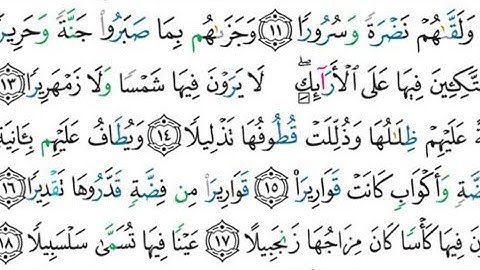 وَلَقَّىٰهُمْ نَضْرَةً وَسُرُورًا ﴿١١﴾ وَجَزَىٰهُم بِمَا صَبَرُوا۟ جَنَّةً وَحَرِيرً
تَّكِـِٔينَ فِيهَا عَلَى ٱلْأَرَآئِكِ ۖ لَا يَرَوْنَ فِيهَا شَمْسًا وَلَا زَمْهَرِيرًا ﴿١٣﴾
ةً عَلَيْهِمْ ظِلَـٰلُهَا وَذُلِّلَتْ قُطُوفُهَا تَذْلِيلًا ﴿١٤﴾ وَيُطَافُ عَلَيْهِم بِـَٔانِيَةٍ
ضَّةٍ وَأَكْوَابٍ كَانَتْ قَوَارِيرَا۠ ﴿١٥﴾ قَوَارِيرَا۟ مِن فِضَّةٍ قَدَّرُوهَا تَقْدِيرًا ﴿١٦﴾
نَ فِيهَا كَأْسًا كَانَ مِزَاجُهَا زَنجَبِيلًا ﴿١٧﴾ عَيْنًا فِيهَا تُسَمَّىٰ سَلْسَبِيلًا ﴿١٨﴾